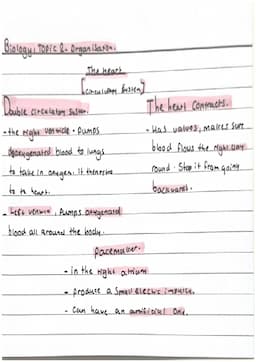 Biology: TOPIC 2 - Organisation.
The heart
[circulatory system]
Double circulatory system.
- the right ventricle - Pumps
deoxygenated blood to lungs
to take in oxygen. It then
to heart.
- Left ventricle, Pumps oxygenated
blood all around the body.
The heart contracts.
- Has valves, makes sure
blood flows the right way
round. Stop it from going
backwards.
Pacemaker.
- in the right atrium
- produce a small electric impulse.
- Can have an artificial one.